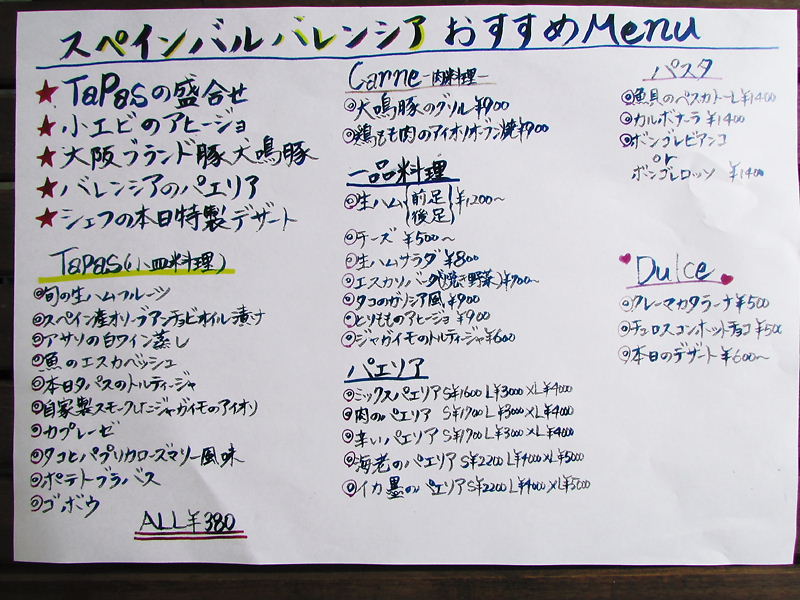 スペインバルバレンシア おすすめMenu
★TaPasの盛合せ
★小エビのアヒージョ
★大阪ブランド豚犬鳴豚
★バレンシアのパエリア
★シェフの本日特製デザート
Tapas(小皿料理)
◎旬の生ハムフルーツ
◎スペイン産オリーブアンチョビオイル漬け
◎アサリの白ワイン蒸し
◎魚のエスカベッシュ
◎本日タパスのトルティージャ
◎自家製スモークしたジャガイモのアイオリ
◎カプレーゼ
◎タコとパプリカローズマリー風味
◎ポテトブラバス
◎ゴボウ
ALL¥380
Carne-肉料理-
◎犬鳴豚のグリル¥900
◎鶏もも肉のアイオリオーブン焼¥900
一品料理
◎生ハム(前足 後足)¥1,200~
◎チーズ ¥500~
◎生ハムサラダ ¥800
◎エスカリバーダ(焼き野菜)¥700~
◎タコのガリシア風¥900
◎とりもものアヒージョ¥900
◎ジャガイモのトルティージャ¥600
パエリア
◎ミックスパエリア S¥1600 L¥3000 XL¥4000
◎肉のパエリア S¥1700 L¥3000 XL¥4000
◎辛いパエリア S¥1700 L¥3000 XL¥4000
◎海老のパエリア S¥2200 L¥4000 XL¥5000
◎イカ墨のパエリア S¥2200 L¥4000 XL¥5000
パスタ
◎魚貝のペスカトーレ¥1400
◎カルボナーラ ¥1400
◎ボンゴレビアンコ
or
ボンゴレロッソ ¥1400
Dulce
◎クレーマカタラーナ¥500
◎チュロスコンホットチョコ¥500
◎本日のデザート¥600~